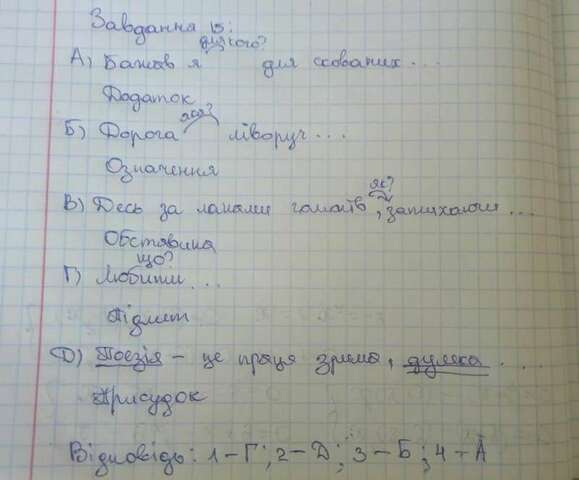 Завдання 15:
для кого?
А) Бажав я для скованих...
Додаток
яка?
Б) Дорога ліворуч...
Означення
як?
В) Десь за ланами гомонів, затихаючи...
Обставина
що?
Г) Любити...
Підмет
Д) Поезія – це праця зрима, думка....
Присудок
Відповідь: 1 – Г; 2 – Д; 3 – Б; 4 – А